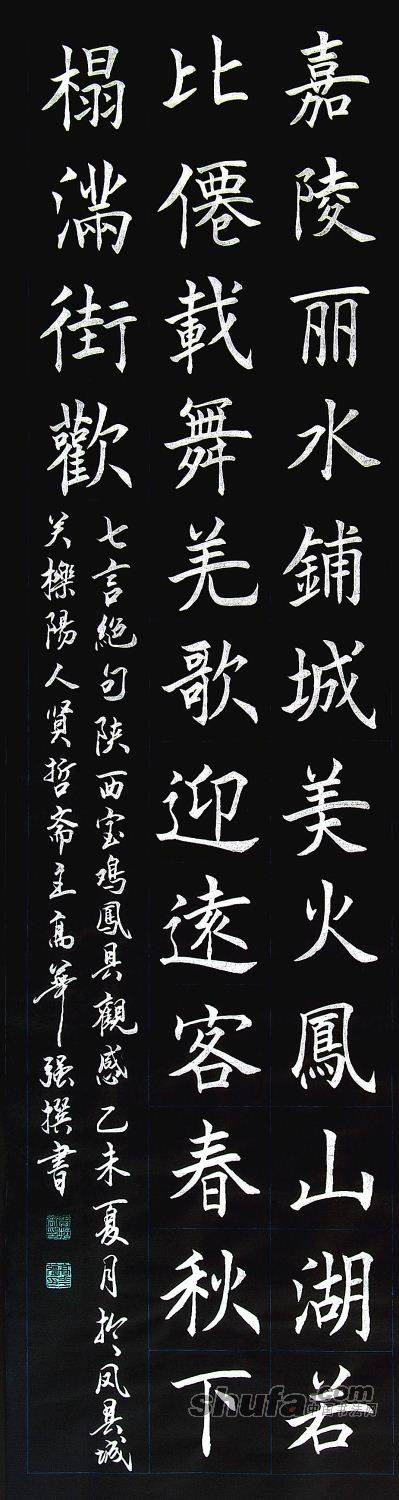 嘉陵丽水鋪城美火鳳山湖若
比僊載舞羌歌迎遠客春秋下
榻滿街歡
七言絕句陕西宝鸡鳳县觀感乙未夏月於凤县城
关櫟陽人贤哲斋主高華强撰書
shufa.com
中国书法网